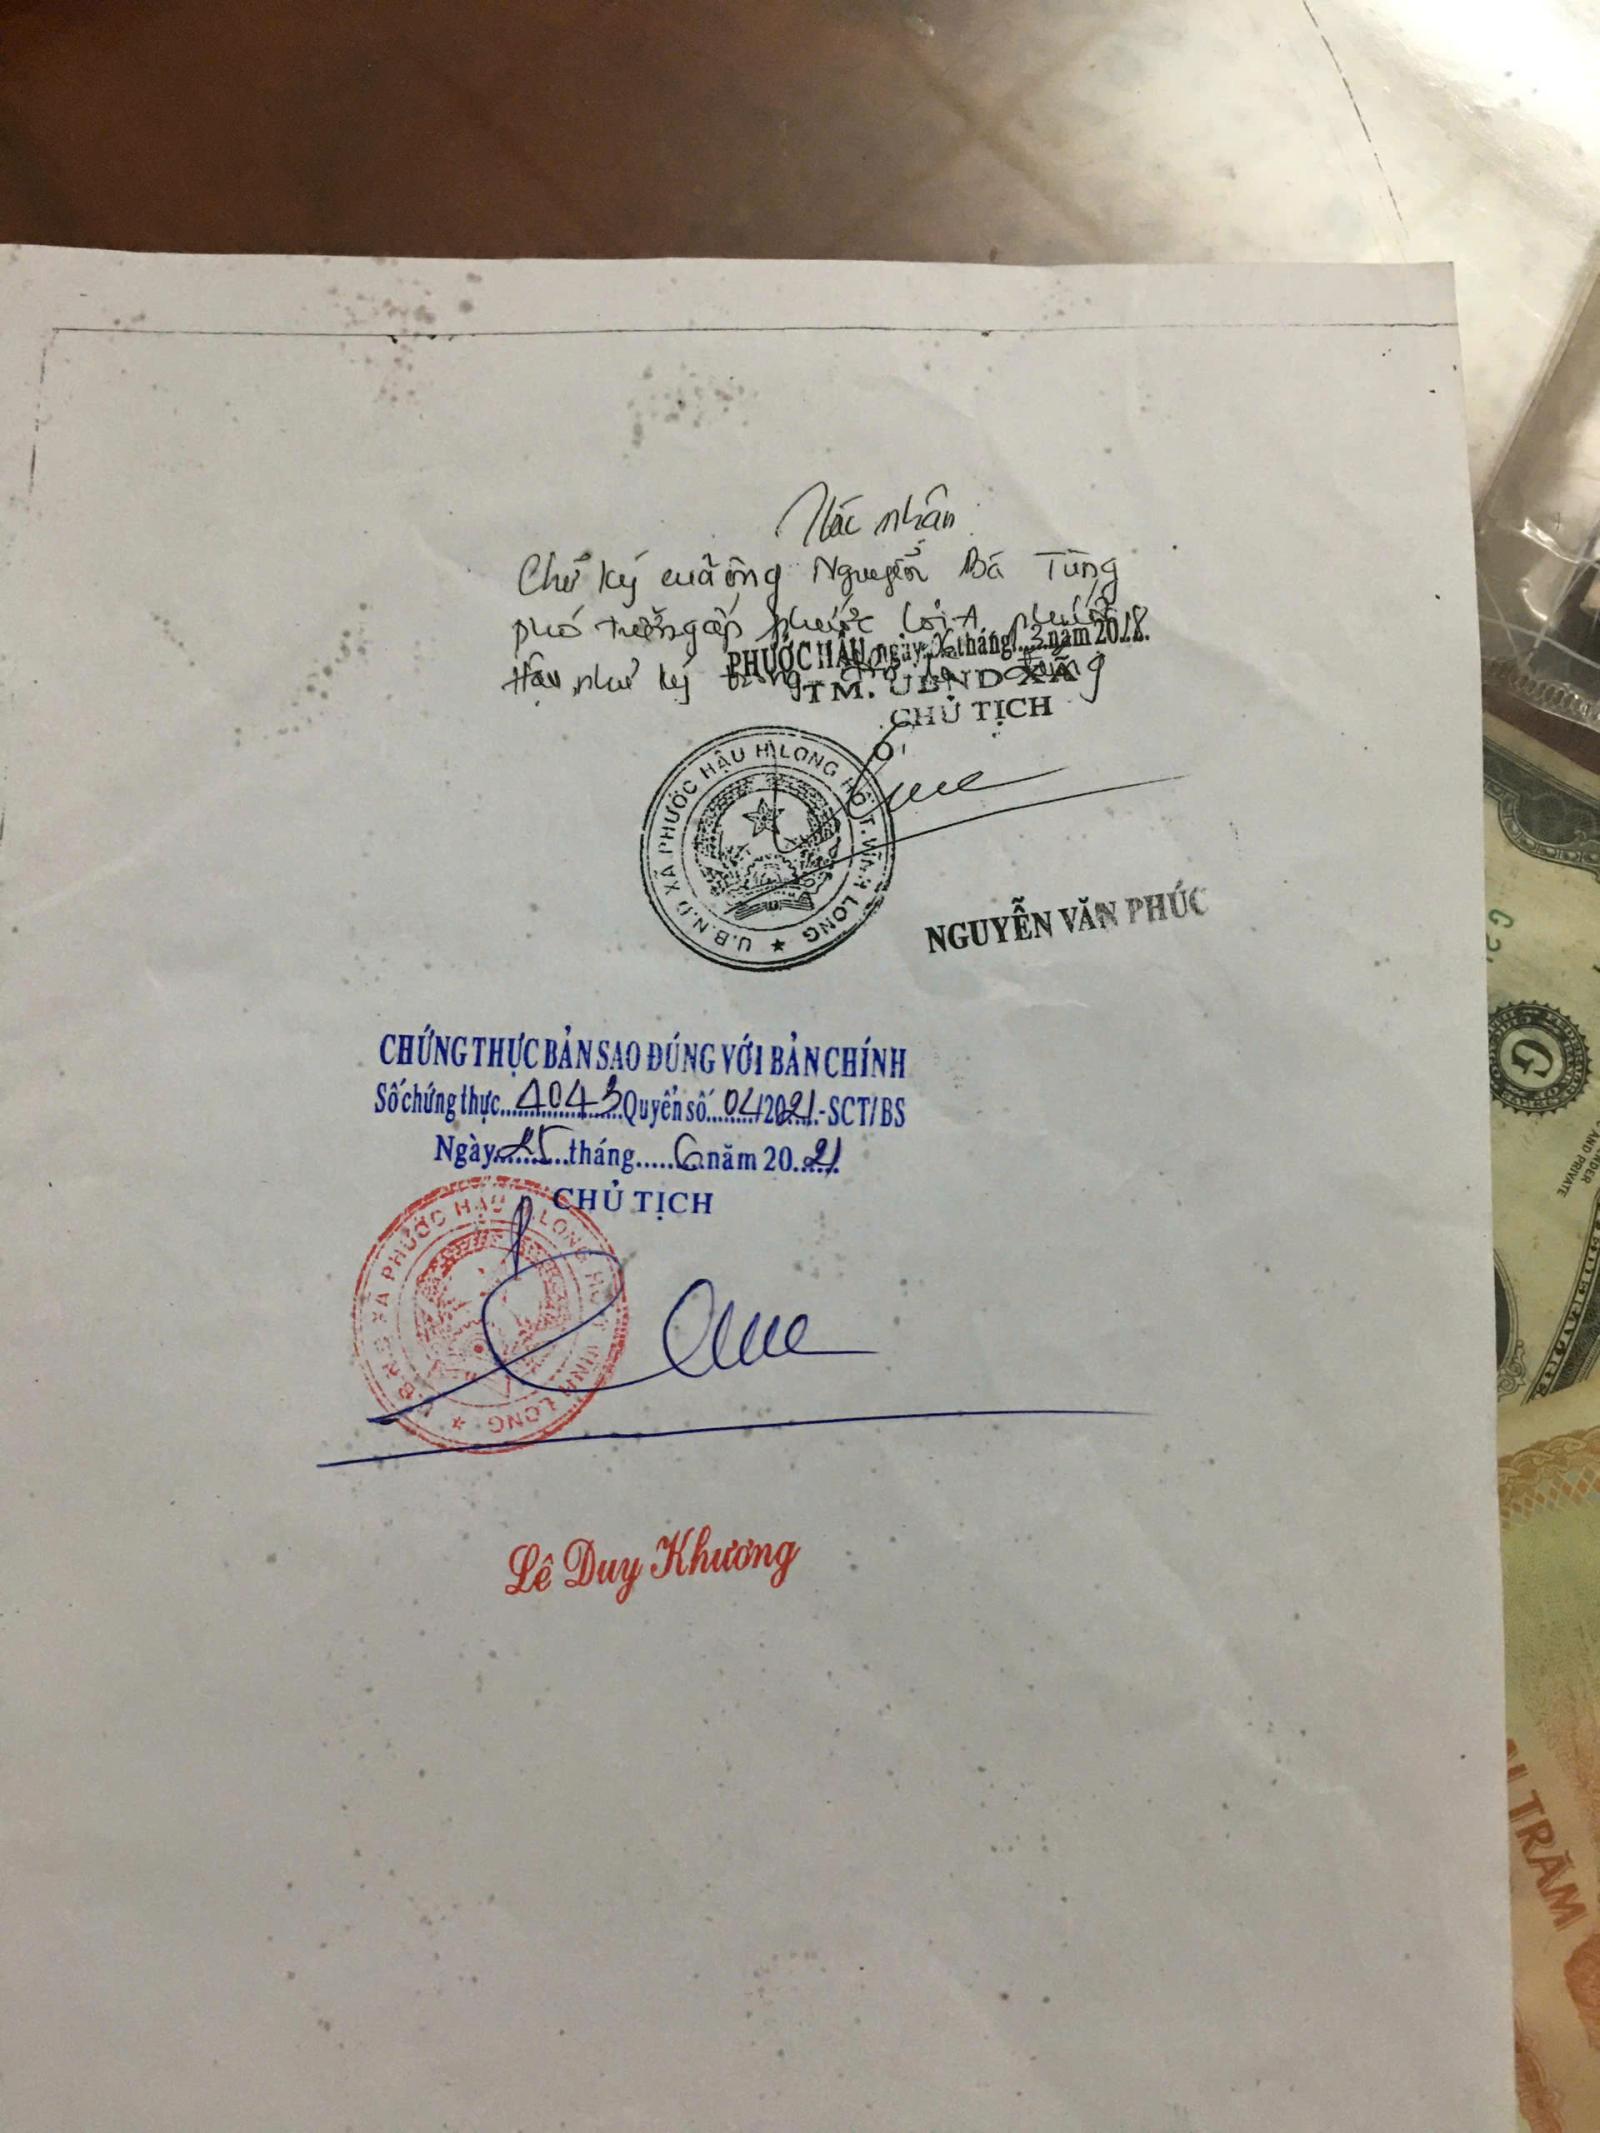 Xác nhận
Chữ ký của ông Nguyễn Bá Tùng
phó trưởng ấp Phước Lợi A Phước
Hậu, như ký trong là đúng
PHƯỚC HẬU, ngày tháng 3 năm 2018.
TM. UBND XÃ
CHỦ TỊCH
U.B.N.D XÃ PHƯỚC HẬU H.LONG HỒ T.VĨNH LONG ★
NGUYỄN VĂN PHÚC
CHỨNG THỰC BẢN SAO ĐÚNG VỚI BẢN CHÍNH
Số chứng thực 4043 Quyển số 04/2021-SCT/BS
Ngày 25 tháng 6 năm 2021
CHỦ TỊCH
U.B.N.D XÃ PHƯỚC HẬU H.LONG HỒ T.VĨNH LONG ★
Lê Duy Khương
G
AND PRIVATE
TRĂM